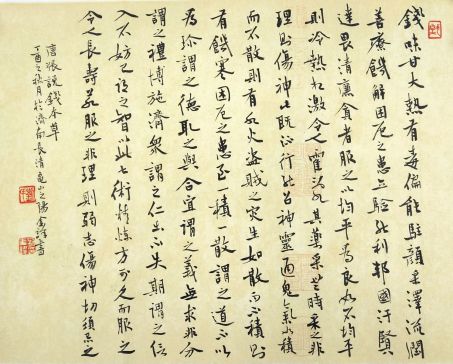 錢味甘大熱有毒偏能駐顏采澤流潤
善療饑解困厄之患立驗能利邦國汙賢
達畏清廉貪者服之以均平為良如不均平
則冷熱相激令人霍亂其藥采無時采之非
理則傷神此既流行能召神靈通鬼氣如積
而不散則有水火盜賊之災生如散而不積則
有饑寒困厄之患至一積一散謂之道不以
為珍謂之德取之與合宜謂之義無求非分
謂之禮博施濟眾謂之仁出不失期謂之信
入不妨己謂之智以此七術精煉方可久而服之
令人長壽若服之非理則弱志傷神切須忌之
唐張說錢本草
丁酉秋月於濟南長清山之陽書